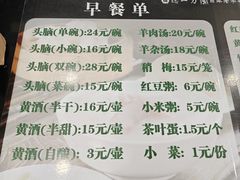 早餐单
头脑(单碗):24元/碗 羊肉汤:20元/碗
头脑(小碗):16元/碗 羊杂汤:18元/碗
头脑(双碗):28元/碗 稍梅:15元/笼
头脑(菜碗):15元/碗 红豆粥:6元/碗
黄酒(半干):16元/壶 小米粥:5元/碗
黄酒(半甜):15元/壶 茶叶蛋:1.5元/个
黄酒(自酿):3元/壶 小菜:1元/份